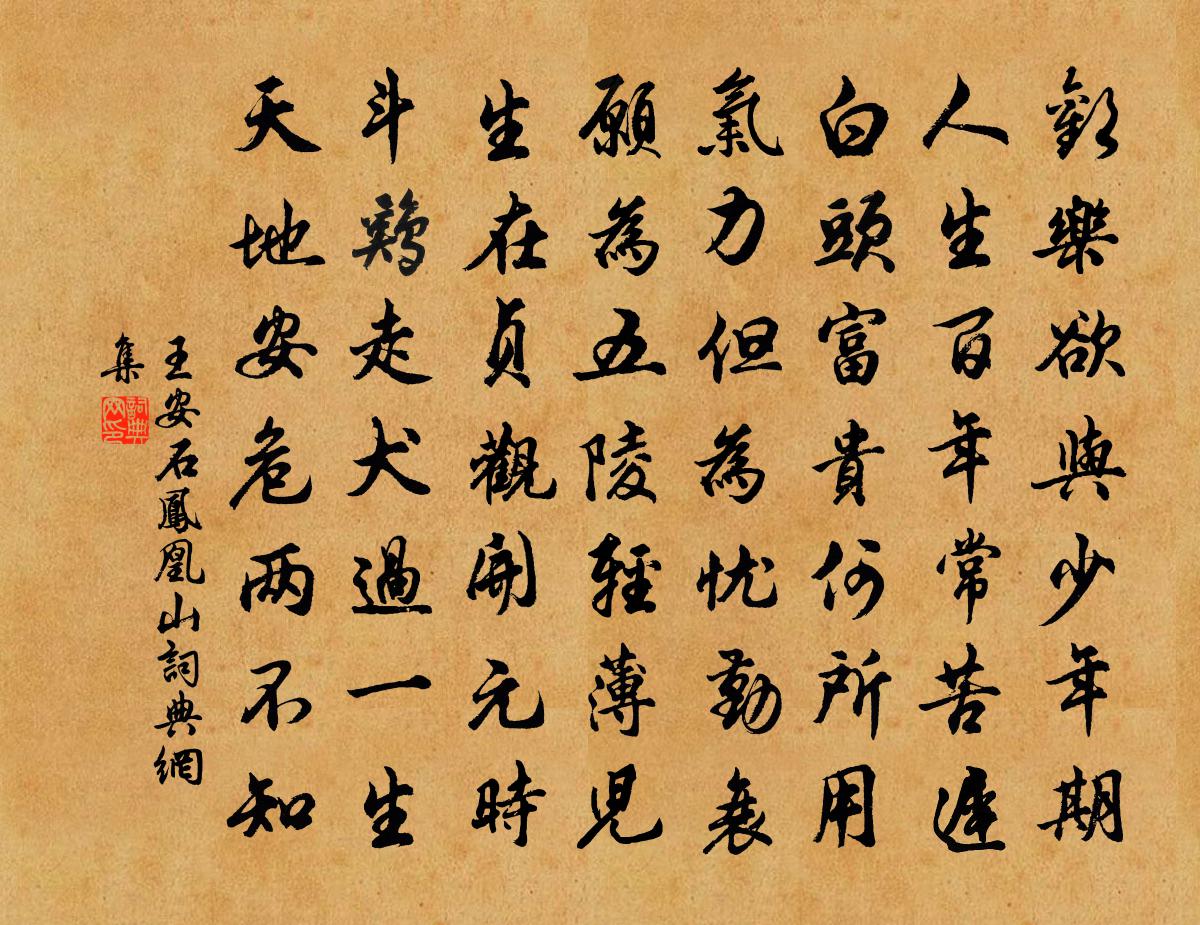 歡樂欲與少年期
人生百年常苦遲
白頭富貴何所用
氣力但為忧勤衰
願為五陵輕薄児
生在貞觀開元時
斗鶏走犬過一生
天地安危两不知
王安石鳳凰山詞典網
集
詞典
网印